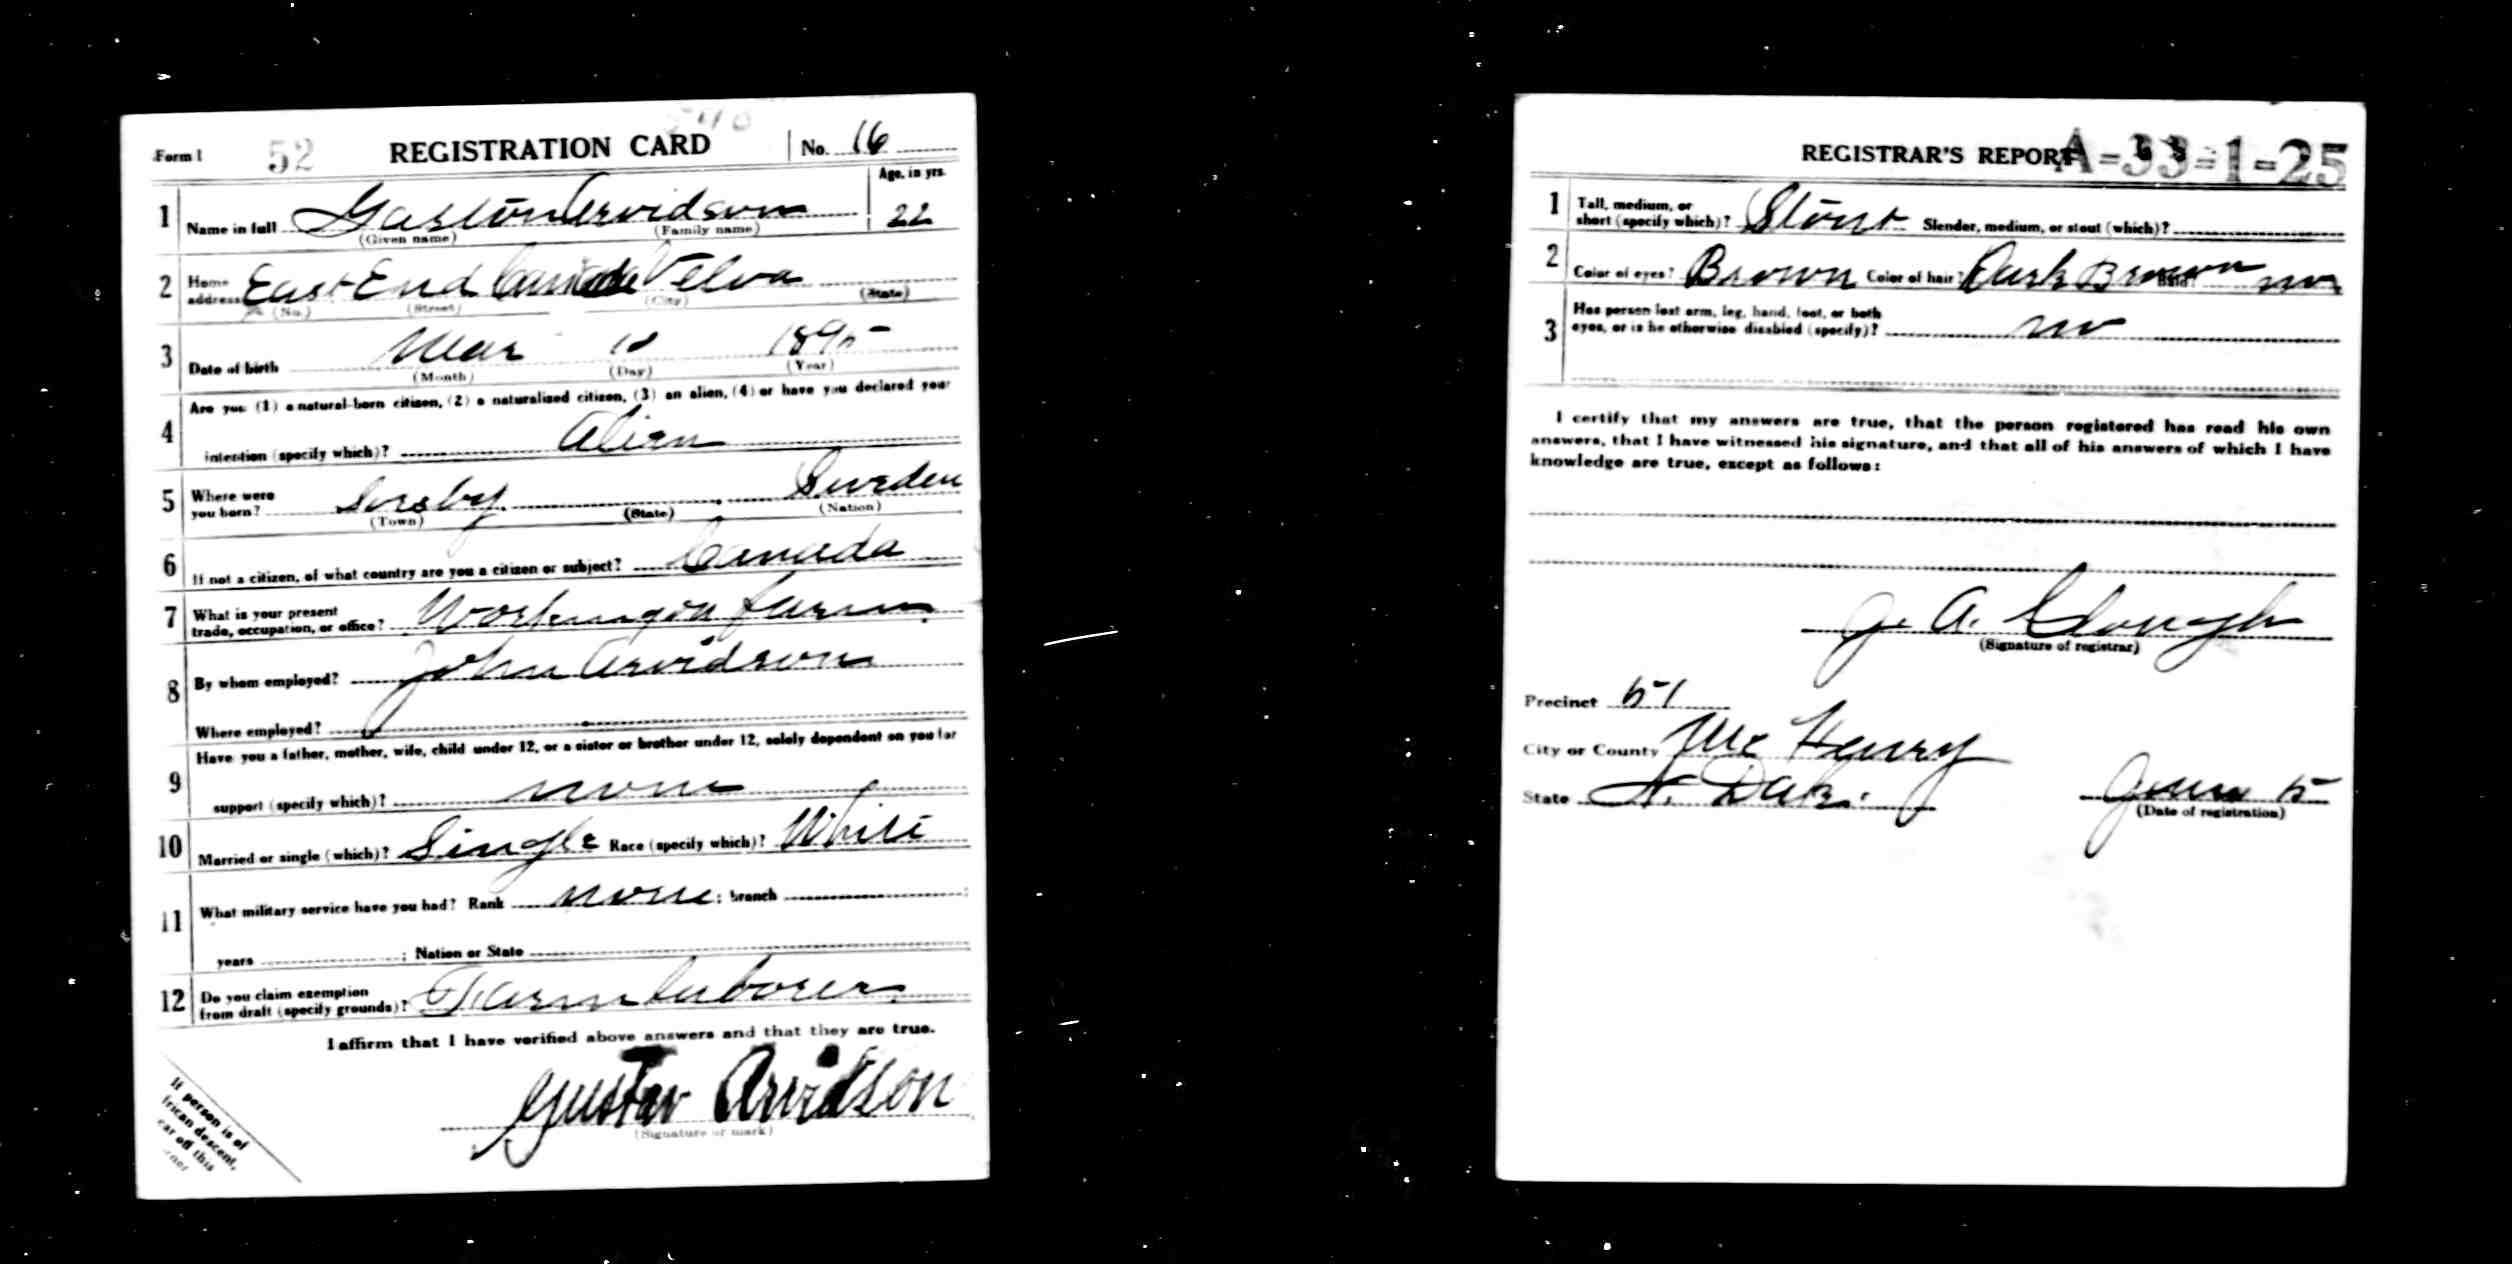 Form 1 52 REGISTRATION CARD No. 16
Age, in yrs.
1 Name in full Gaston Arvidson 22
(Given name) (Family name)
2 Home address East End Canada Velva
(No.) (Street) (City) (State)
3 Date of birth Mar 10 1895
(Month) (Day) (Year)
4 Are you (1) a natural-born citizen, (2) a naturalized citizen, (3) an alien, (4) or have you declared your
intention (specify which)? Alien
5 Where were you born? Sweden
(Town) (State) (Nation)
6 If not a citizen, of what country are you a citizen or subject? Canada
7 What is your present trade, occupation, or office? Working on farm
8 By whom employed? John Arvidson
Where employed?
9 Have you a father, mother, wife, child under 12, or a sister or brother under 12, solely dependent on you for
support (specify which)? none
10 Married or single (which)? Single Race (specify which)? White
11 What military service have you had? Rank none; branch
years ; Nation or State
12 Do you claim exemption from draft (specify grounds)? Farm laborer
I affirm that I have verified above answers and that they are true.
Gustav Arvidson
(Signature or mark)
If person is of
frican descent,
ear off this
rner
REGISTRAR'S REPORT A-33-1-25
1 Tall, medium, or short (specify which)? Stout Slender, medium, or stout (which)?
2 Color of eyes? Brown Color of hair? Dark Brown Bald? no
3 Has person lost arm, leg, hand, foot, or both
eyes, or is he otherwise disabled (specify)? no
I certify that my answers are true, that the person registered has read his own
answers, that I have witnessed his signature, and that all of his answers of which I have
knowledge are true, except as follows:
J. A. Clough
(Signature of registrar)
Precinct 51
City or County McHenry
State N. Dak. June 5
(Date of registration)